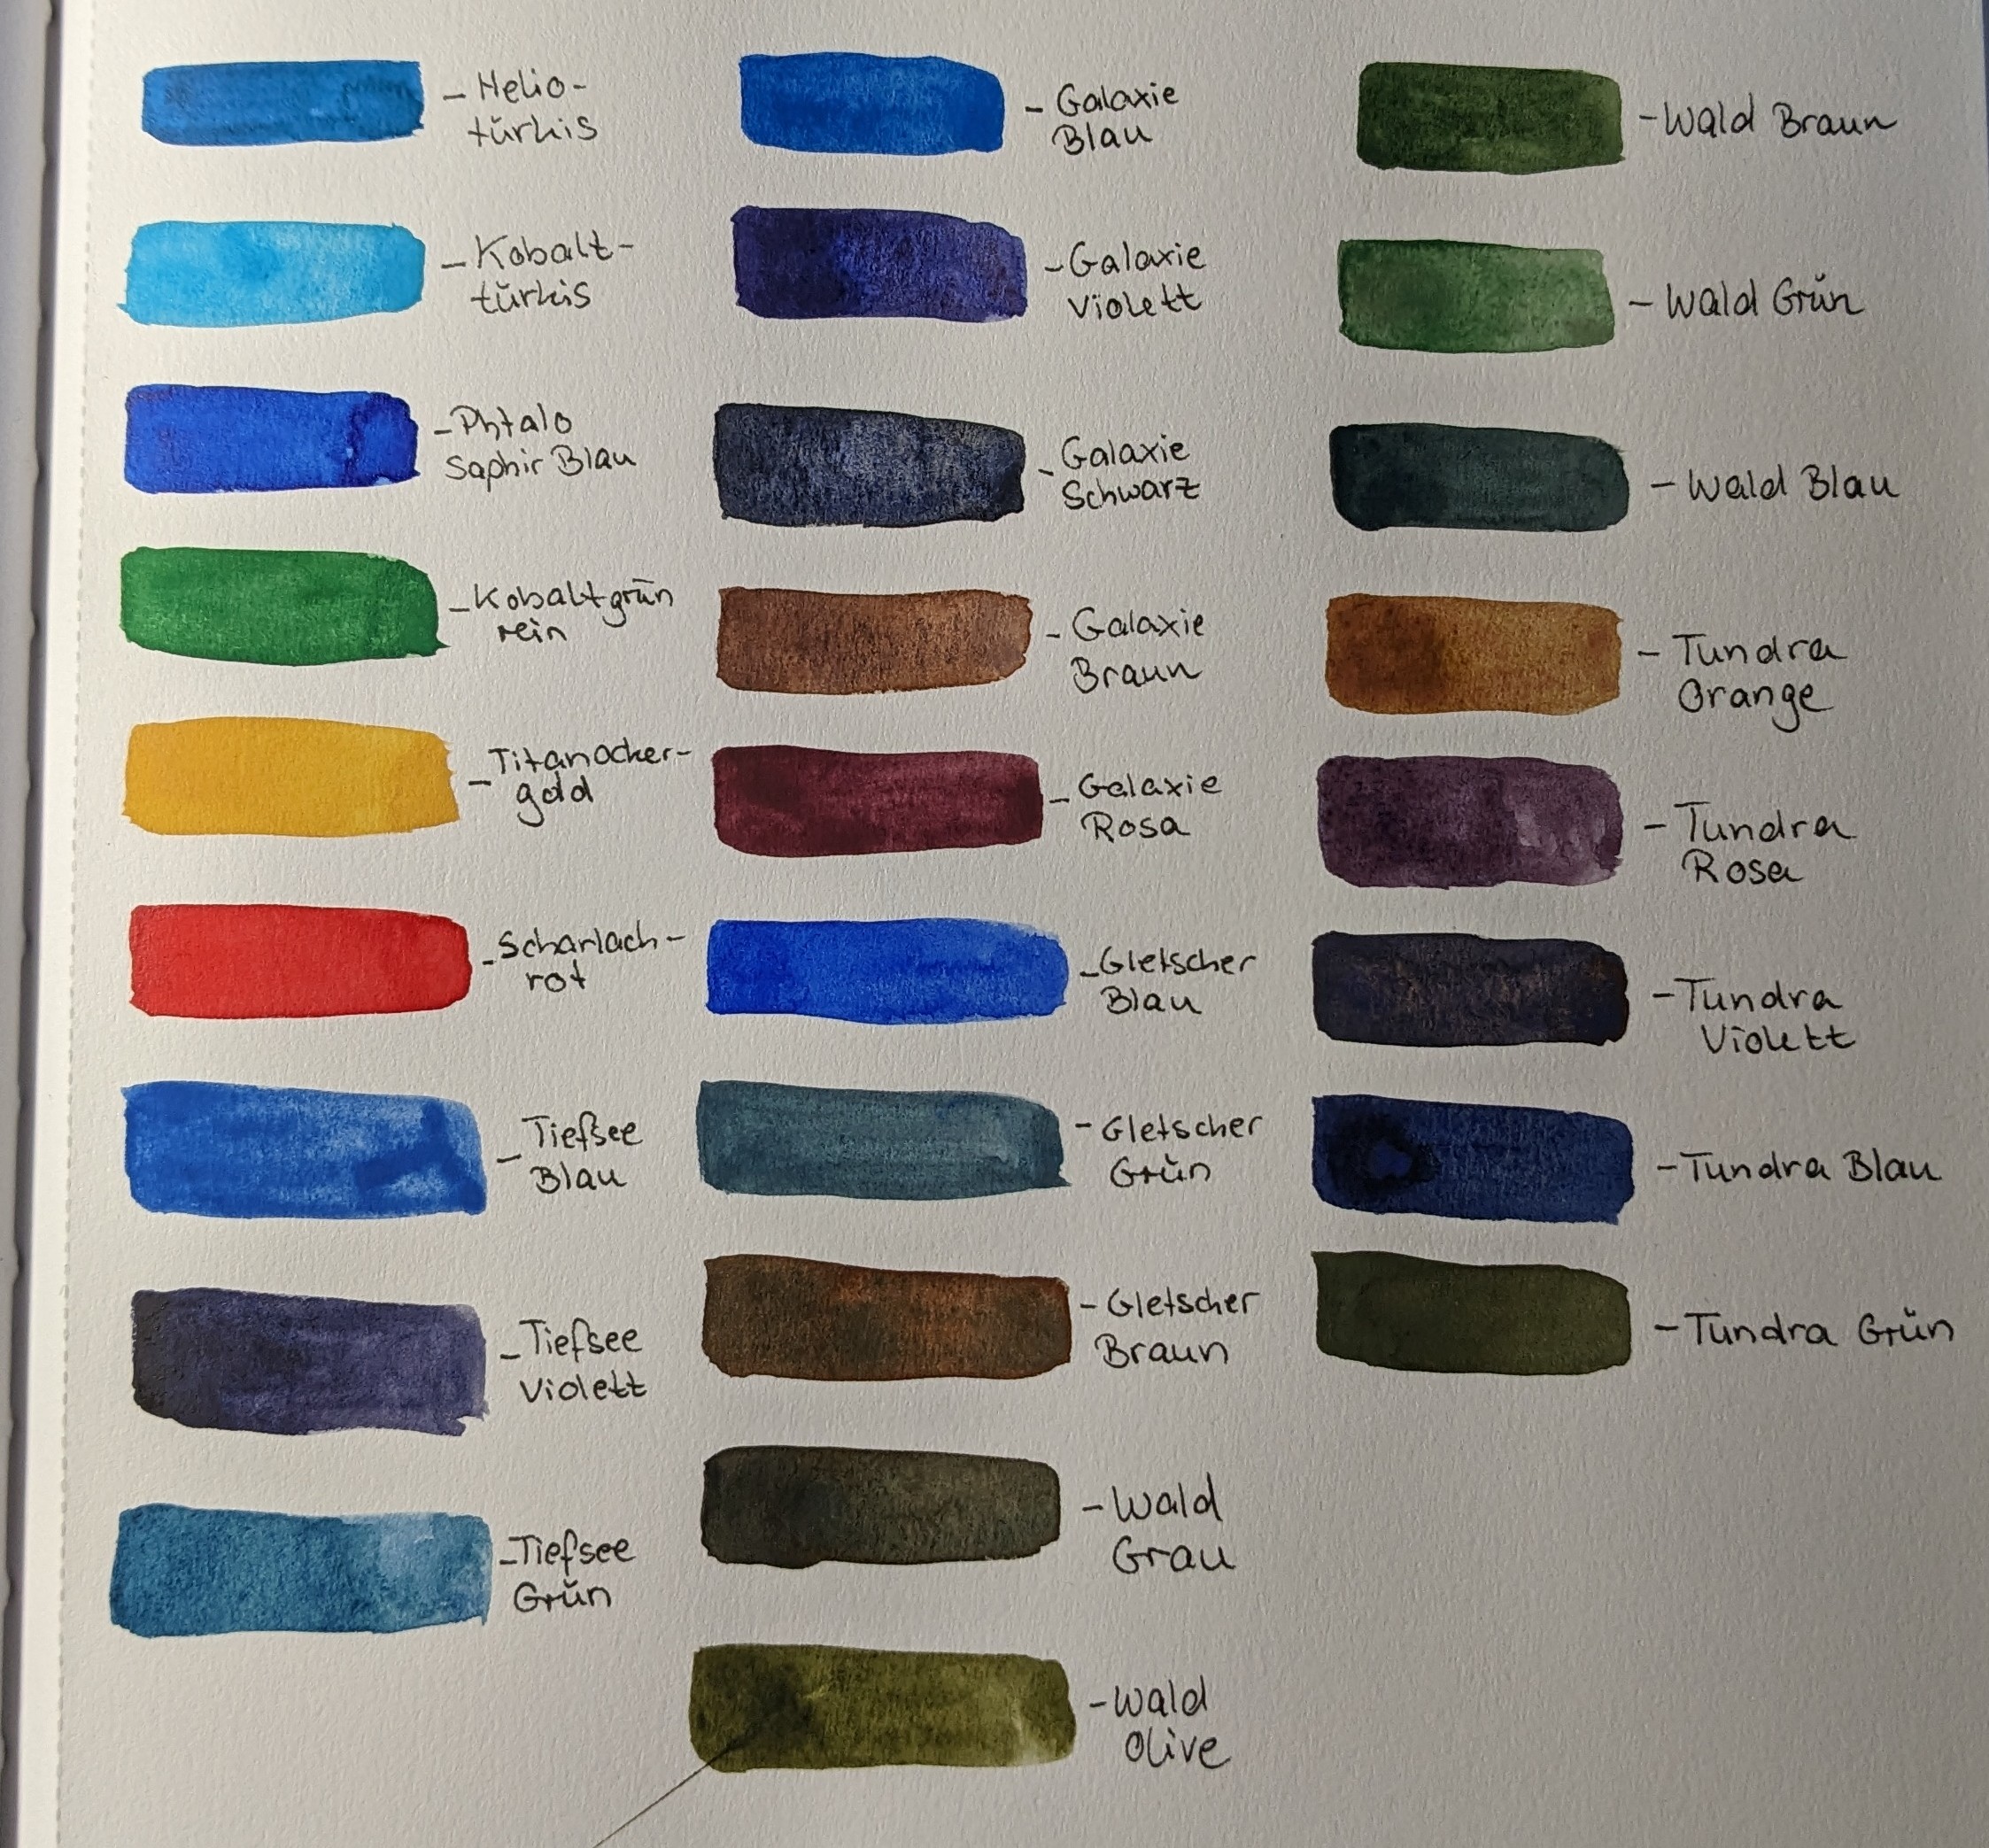 - Helio-
türkis
- Kobalt-
türkis
- Phtalo
Saphir Blau
- Kobaltgrün
rein
- Titanocker-
gold
- Scharlach-
rot
- Tiefsee
Blau
- Tiefsee
Violett
- Tiefsee
Grün
- Galaxie
Blau
- Galaxie
Violett
- Galaxie
Schwarz
- Galaxie
Braun
- Galaxie
Rosa
- Gletscher
Blau
- Gletscher
Grün
- Gletscher
Braun
- Wald
Grau
- Wald
Olive
- Wald Braun
- Wald Grün
- Wald Blau
- Tundra
Orange
- Tundra
Rosa
- Tundra
Violett
- Tundra Blau
- Tundra Grün